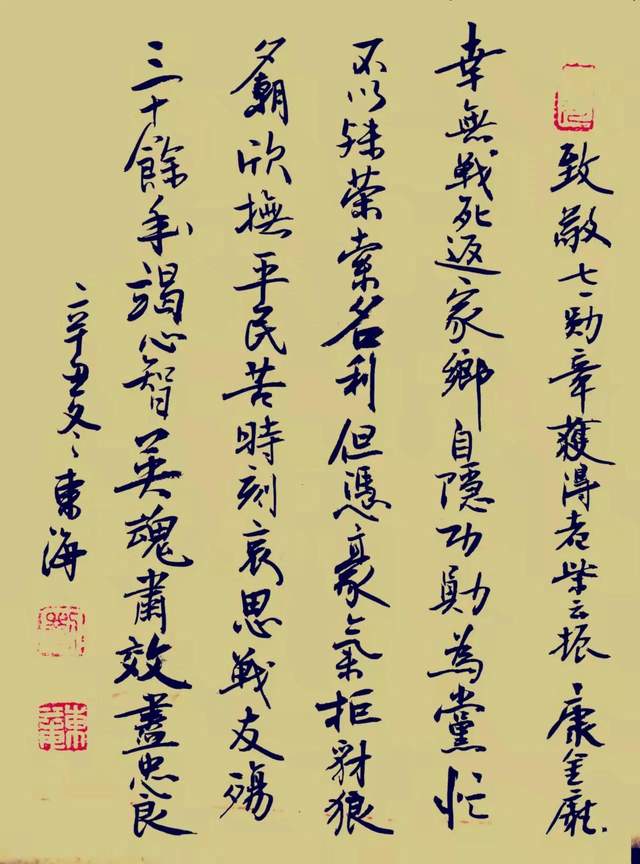 致敬七一勛章獲得者柴云振、康金龐
幸無戰死返家鄉自隱功勛為黨忙
不以殊榮索名利但憑豪氣拒豺狼
夕朝欣撫平民苦時刻哀思戰友殤
三十餘年竭心智英魂肅效盡忠良
辛丑冬、東海